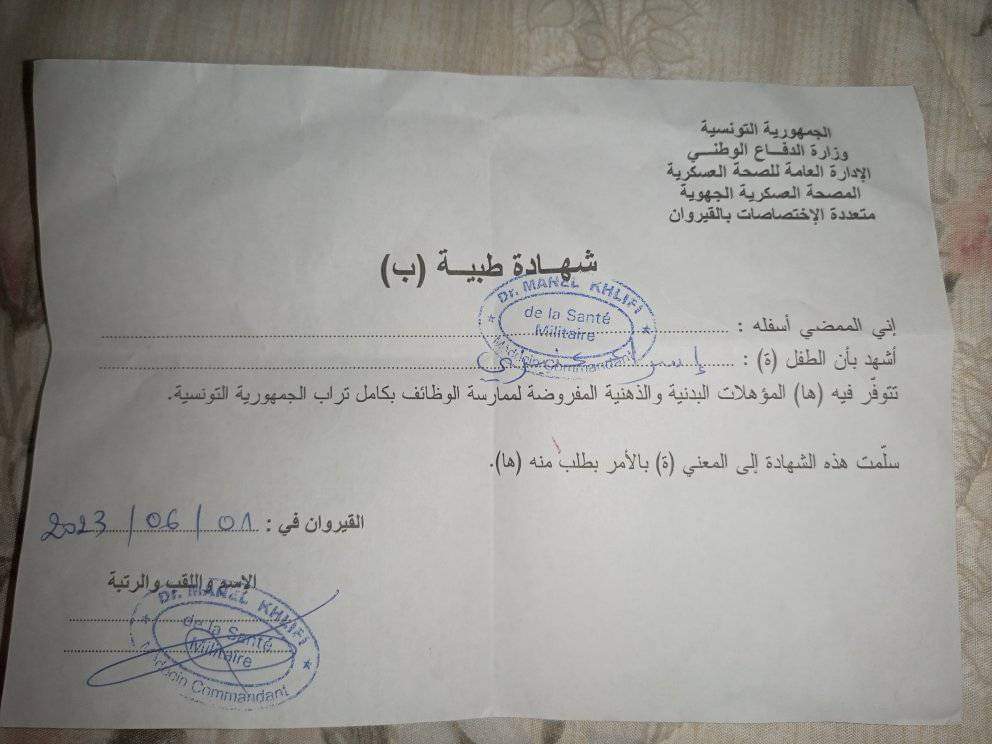 الجمهورية التونسية
وزارة الدفـــاع الوطنـــي
الإدارة العامة للصحة العسكرية
المصحة العسكرية الجهوية
متعددة الإختصاصات بالقيروان
شهـــادة طبيـــة (ب)
إني الممضي أسفله :
Dr. MANEL KHLIFI
de la Santé
Militaire
Médecin Commandant
أشهد بأن الطفل (ة) :
تتوفّر فيه (ها) المؤهلات البدنية والذهنية المفروضة لممارسة الوظائف بكامل تراب الجمهورية التونسية.
سلّمت هذه الشهادة إلى المعني (ة) بالأمر بطلب منه (ها).
القيروان في : 01 / 06 / 2023
الاسم واللقب والرتبة
Dr. MANEL KHLIFI
de la Santé
Militaire
Médecin Commandant